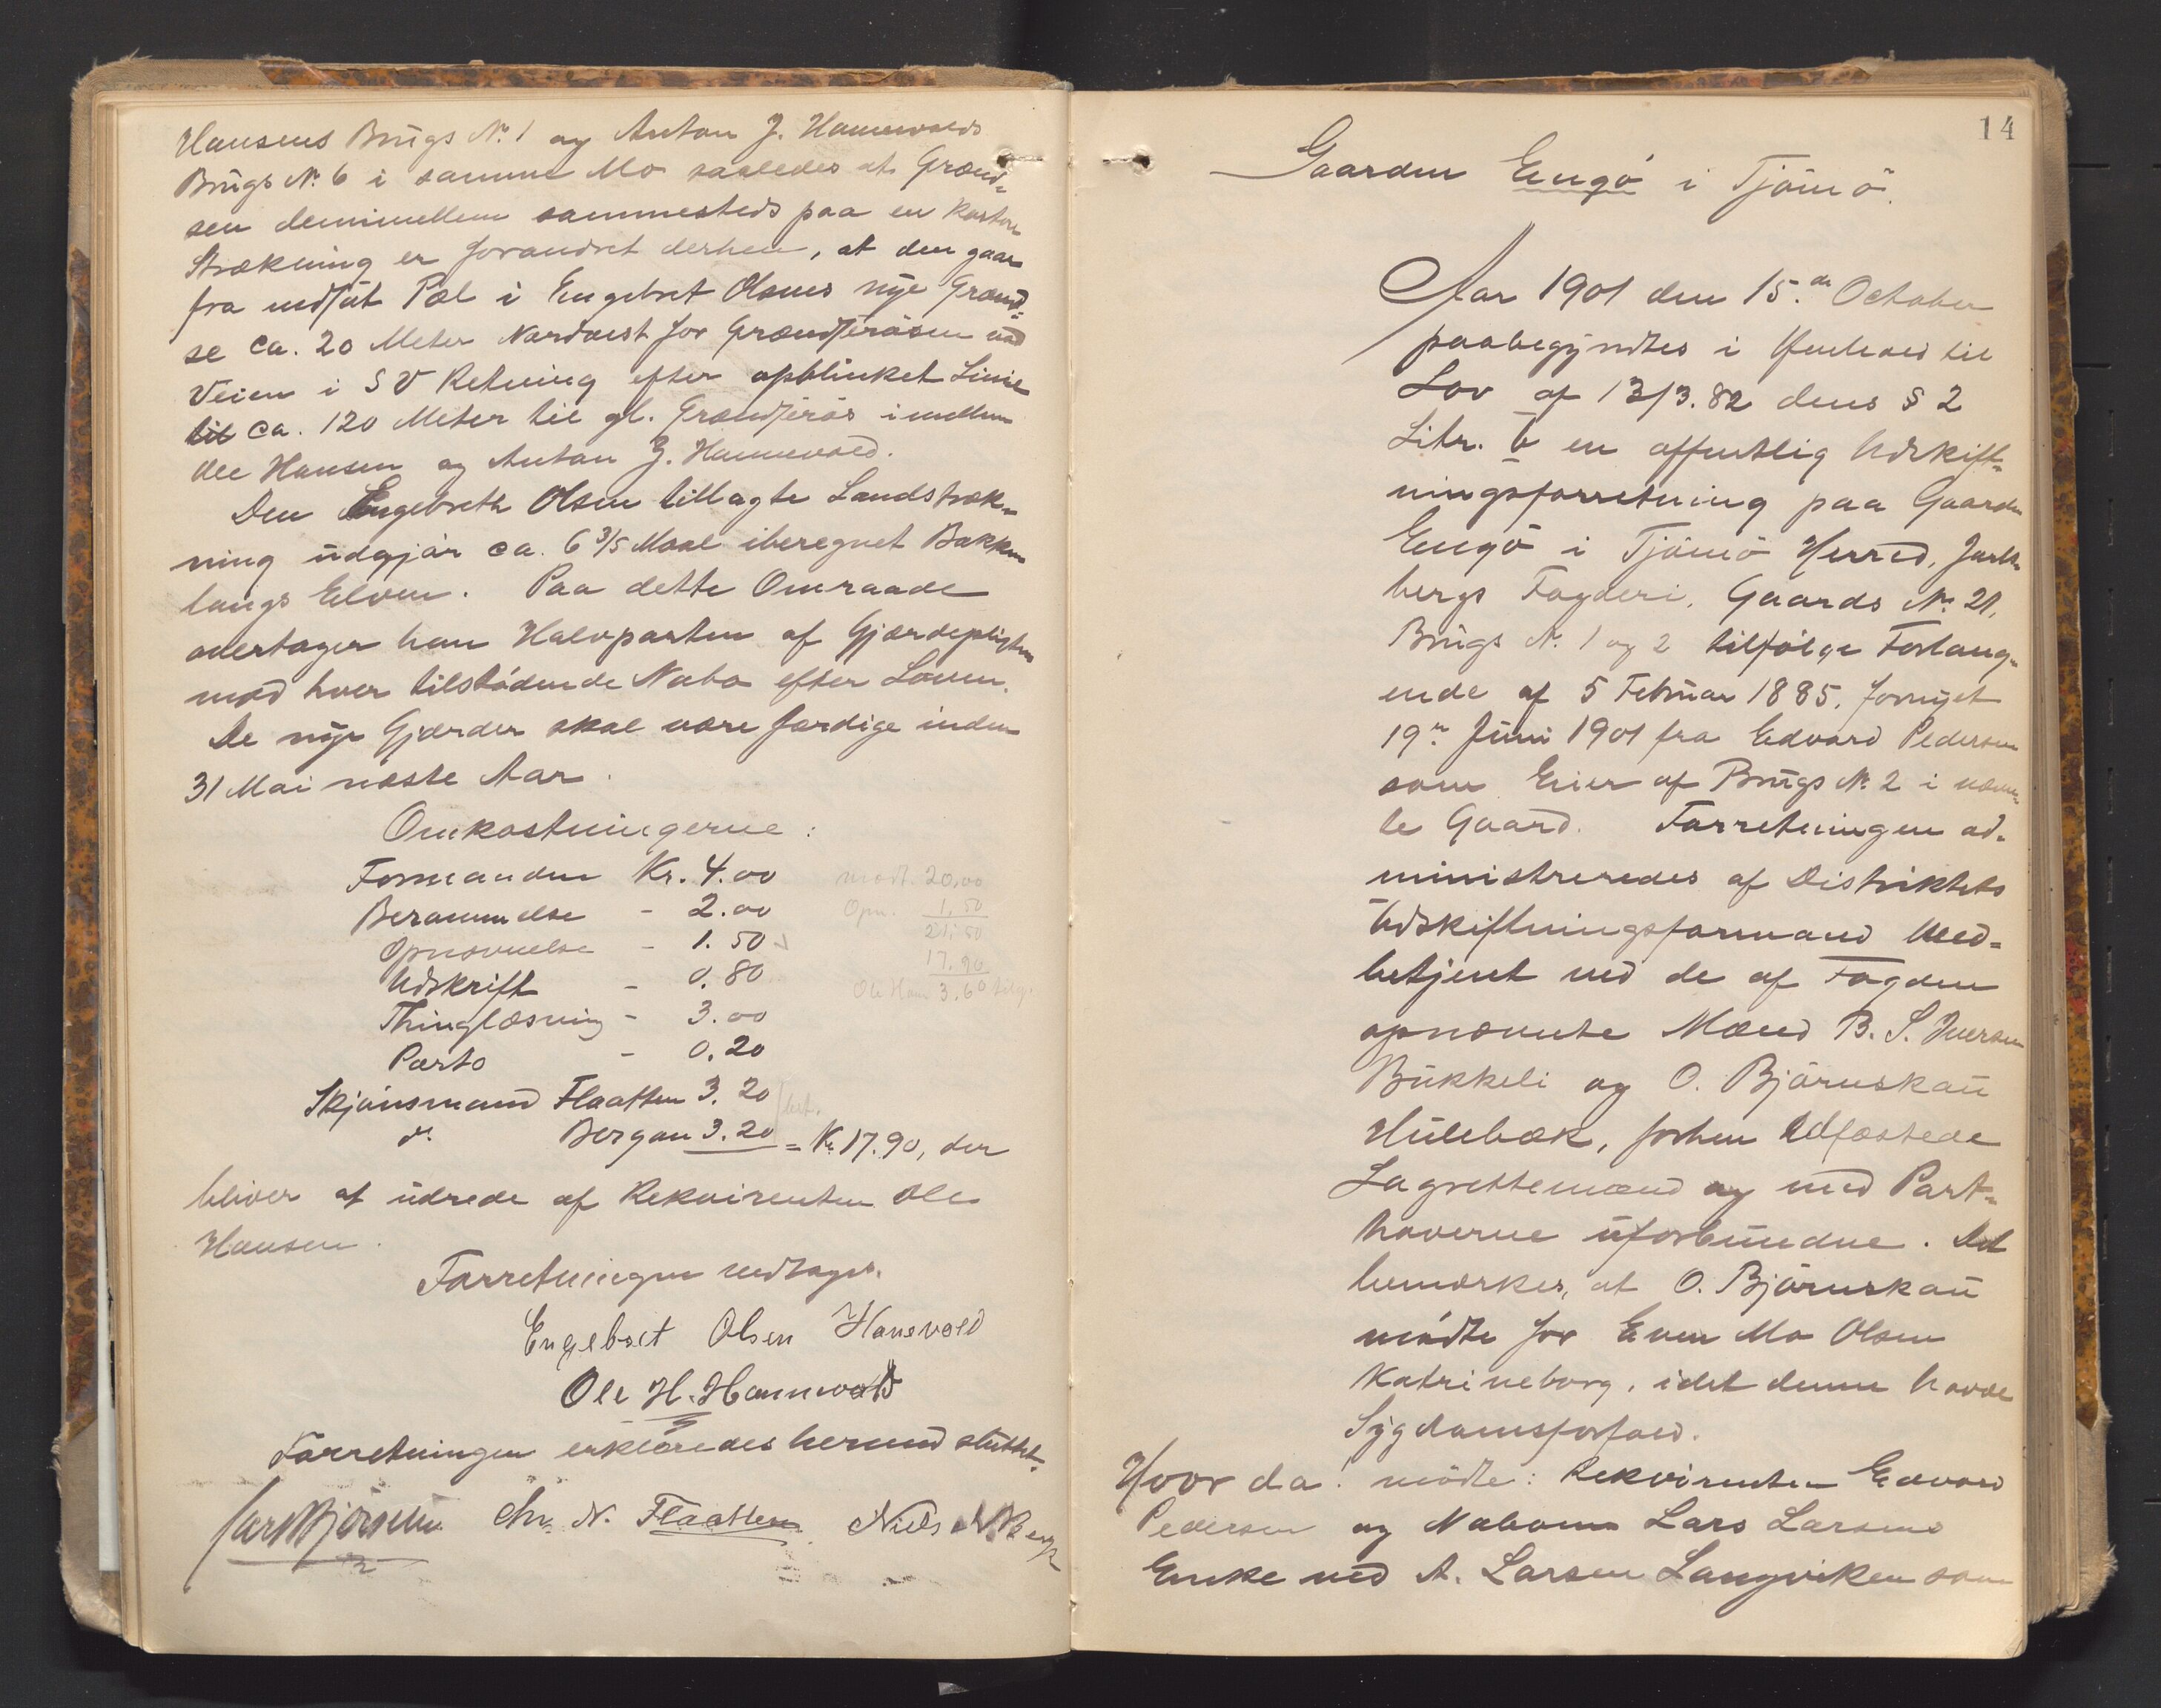 Hansens Brugs No. 1 og Anton J. Hannevolds
Brugs No. 6 i samme Mo saaledes at Grænd-
sen derimellem sammesteds paa en kortere
Strækning er forandret derhen, at den gaar
fra nedsat Pæl i Engebret Olsens nye Grænd-
se ca. 20 Meter Nordvest for Grændserösen ved
Veien i S V Retning efter opblinket Linie
til ca. 120 Meter til gl. Grændserös imellem
Ole Hansen og Anton J. Hannevold.
Den Engebreth Olsen tillagte Landstræk-
ning udgjør ca. 6 3/5 Maal iberegnet Bakken
langs Elven. Paa dette Omraade
overtager han Halvparten af Gjærdepligten
mod hver tilstödende Nabo efter Loven.
De nye Gjærder skal være færdige inden
31 Mai næste Aar.
Omkostningerne:
Formanden Kr. 4.00
Berammelse - 2.00
Opnævnelse - 1.50
Udskrift - 0.80
Thinglæsning - 3.00
Porto - 0.20
Skjönsmand Flaatten 3.20
do. Bergan 3.20 = Kr. 17.90, der
modt. 20,00
Opn. 1.50
21,50
17.90
Ole Han 3.60
bliver at udrede af Rekvirenten Ole
Hansen.
Forretningen vedtages.
Engebret Olsen Hanevold
Ole H. Hannevold
Forretningen erklæredes hermed sluttet.
Chr. N. Flaatten Niels
14
Gaarden Engö i Tjömö.
Aar 1901 den 15.de October
paabegyndtes i Henhold til
Lov af 13/3.82 dens § 2
Litr. b en offentlig Udskift-
ningsforretning paa Gaarden
Engö i Tjömö Herred, Jarls-
bergs Fogderi, Gaards No. 21,
Brugs No. 1 og 2 tilfölge Forlang-
ende af 5 Februar 1885, fornyet
19de Juni 1901 fra Edvard Pedersen
som Eier af Brugs No. 2 i nævn-
te Gaard. Forretningen ad-
ministreredes af Distriktets
Udskiftningsformand Med-
betjent ved de af Fogden
opnævnte Mænd B. S. Iversen
Bukkeli og O. Björnskau
Hulebæk, forhen Edfæstede
Lagrettemænd og med Part-
haverne uforbundne. Det
bemærkes, at O. Björnskau
mödte for Even Mo Olsen
Katrineborg, idet denne havde
Sygdomsforfald.
Hvor da: mödte: Rekvirenten Edvard
Pedersen og Naboen Lars Larsens
Enke ved A. Larsen Langviken som